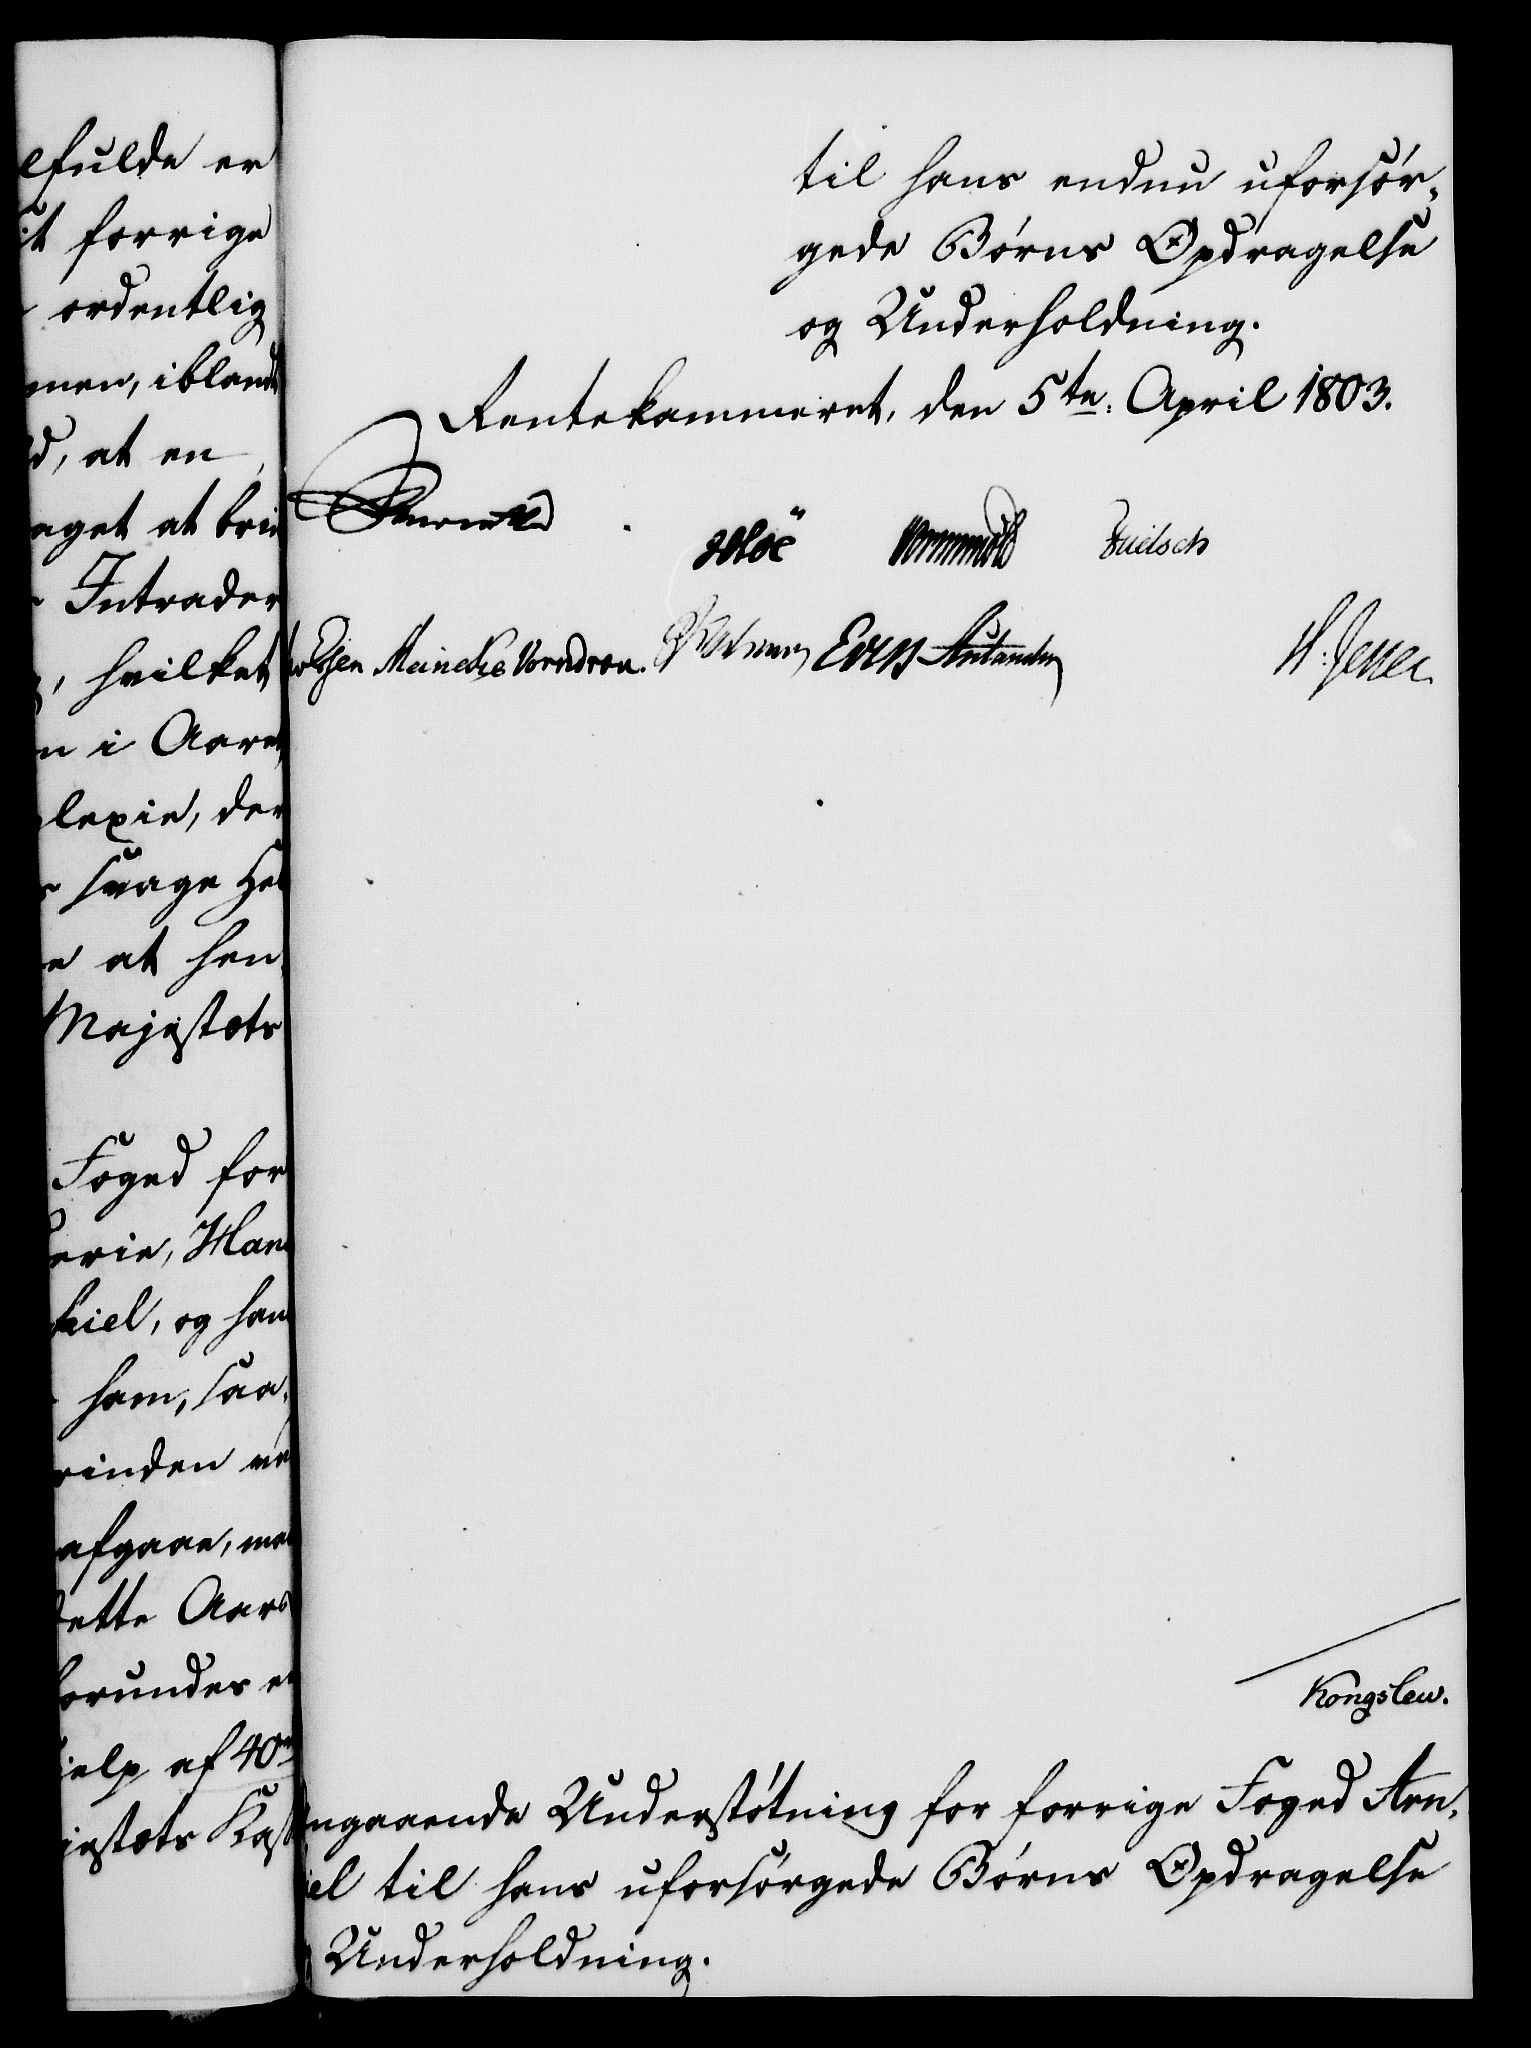 lfulde er
it forrige
ordentlig
men, iblandt
d, at en
aget at brin
Intrader
, hvilket
n i Aaret
lexie, der
svage Hel
e at hen
Majestæts
Foged for
erie, Mar
kiel, og han
ham, saa
rinden ve
afgaae, me
dette Aars
forundes e
ielp af 40
iestæts Kas
til hans endnu uforsør-
gede Børns Opdragelse
og Underholdning.
Rentekammeret, den 5te. April 1803.
Meincke Wormdrou.
Kongslew.
ngaaende Understøtning for forrige Foged Arn,
iel til hans uforsørgede Børns Opdragelse
Underholdning.